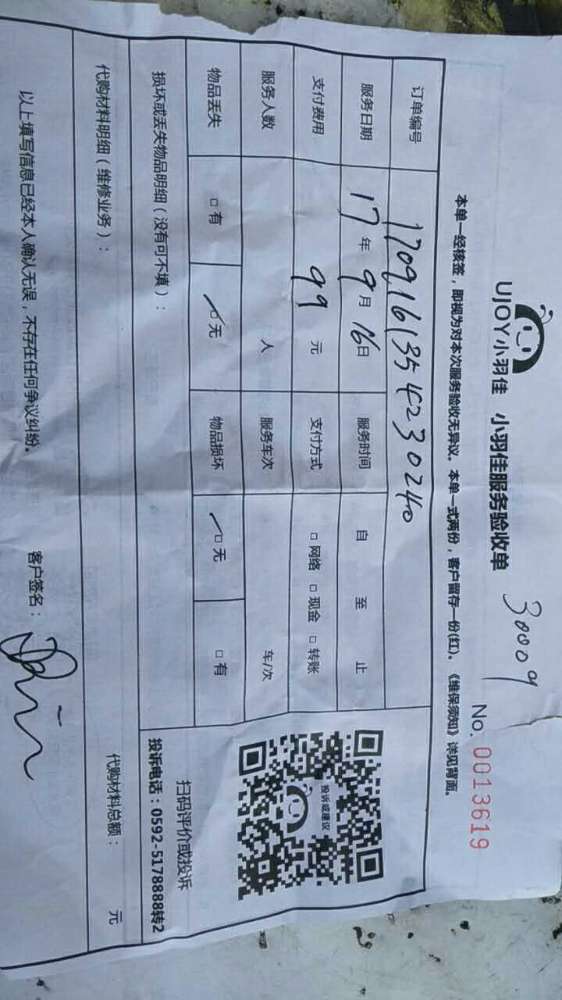 UJOY小羽佳 小羽佳服务验收单
30009
No. 0013619
本单一经核签，即视为对本次服务验收无异议。本单一式两份，客户留存一份(红)。《维保须知》详见背面。
订单编号 1709161354230240
服务日期 17年9月16日 服务时间 自 至 止
支付费用 99元 支付方式 □网络 □现金 □转账
服务人数 人 服务车次 车/次
物品丢失 □有 ☑无 物品损坏 ☑无 □有
投诉或建议
扫码评价或投诉
投诉电话：0592-5178888转2
损坏或丢失物品明细（没有可不填）：
代购材料明细（维修业务）： 代购材料总额： 元
以上填写信息已经本人确认无误，不存在任何争议纠纷。 客户签名：